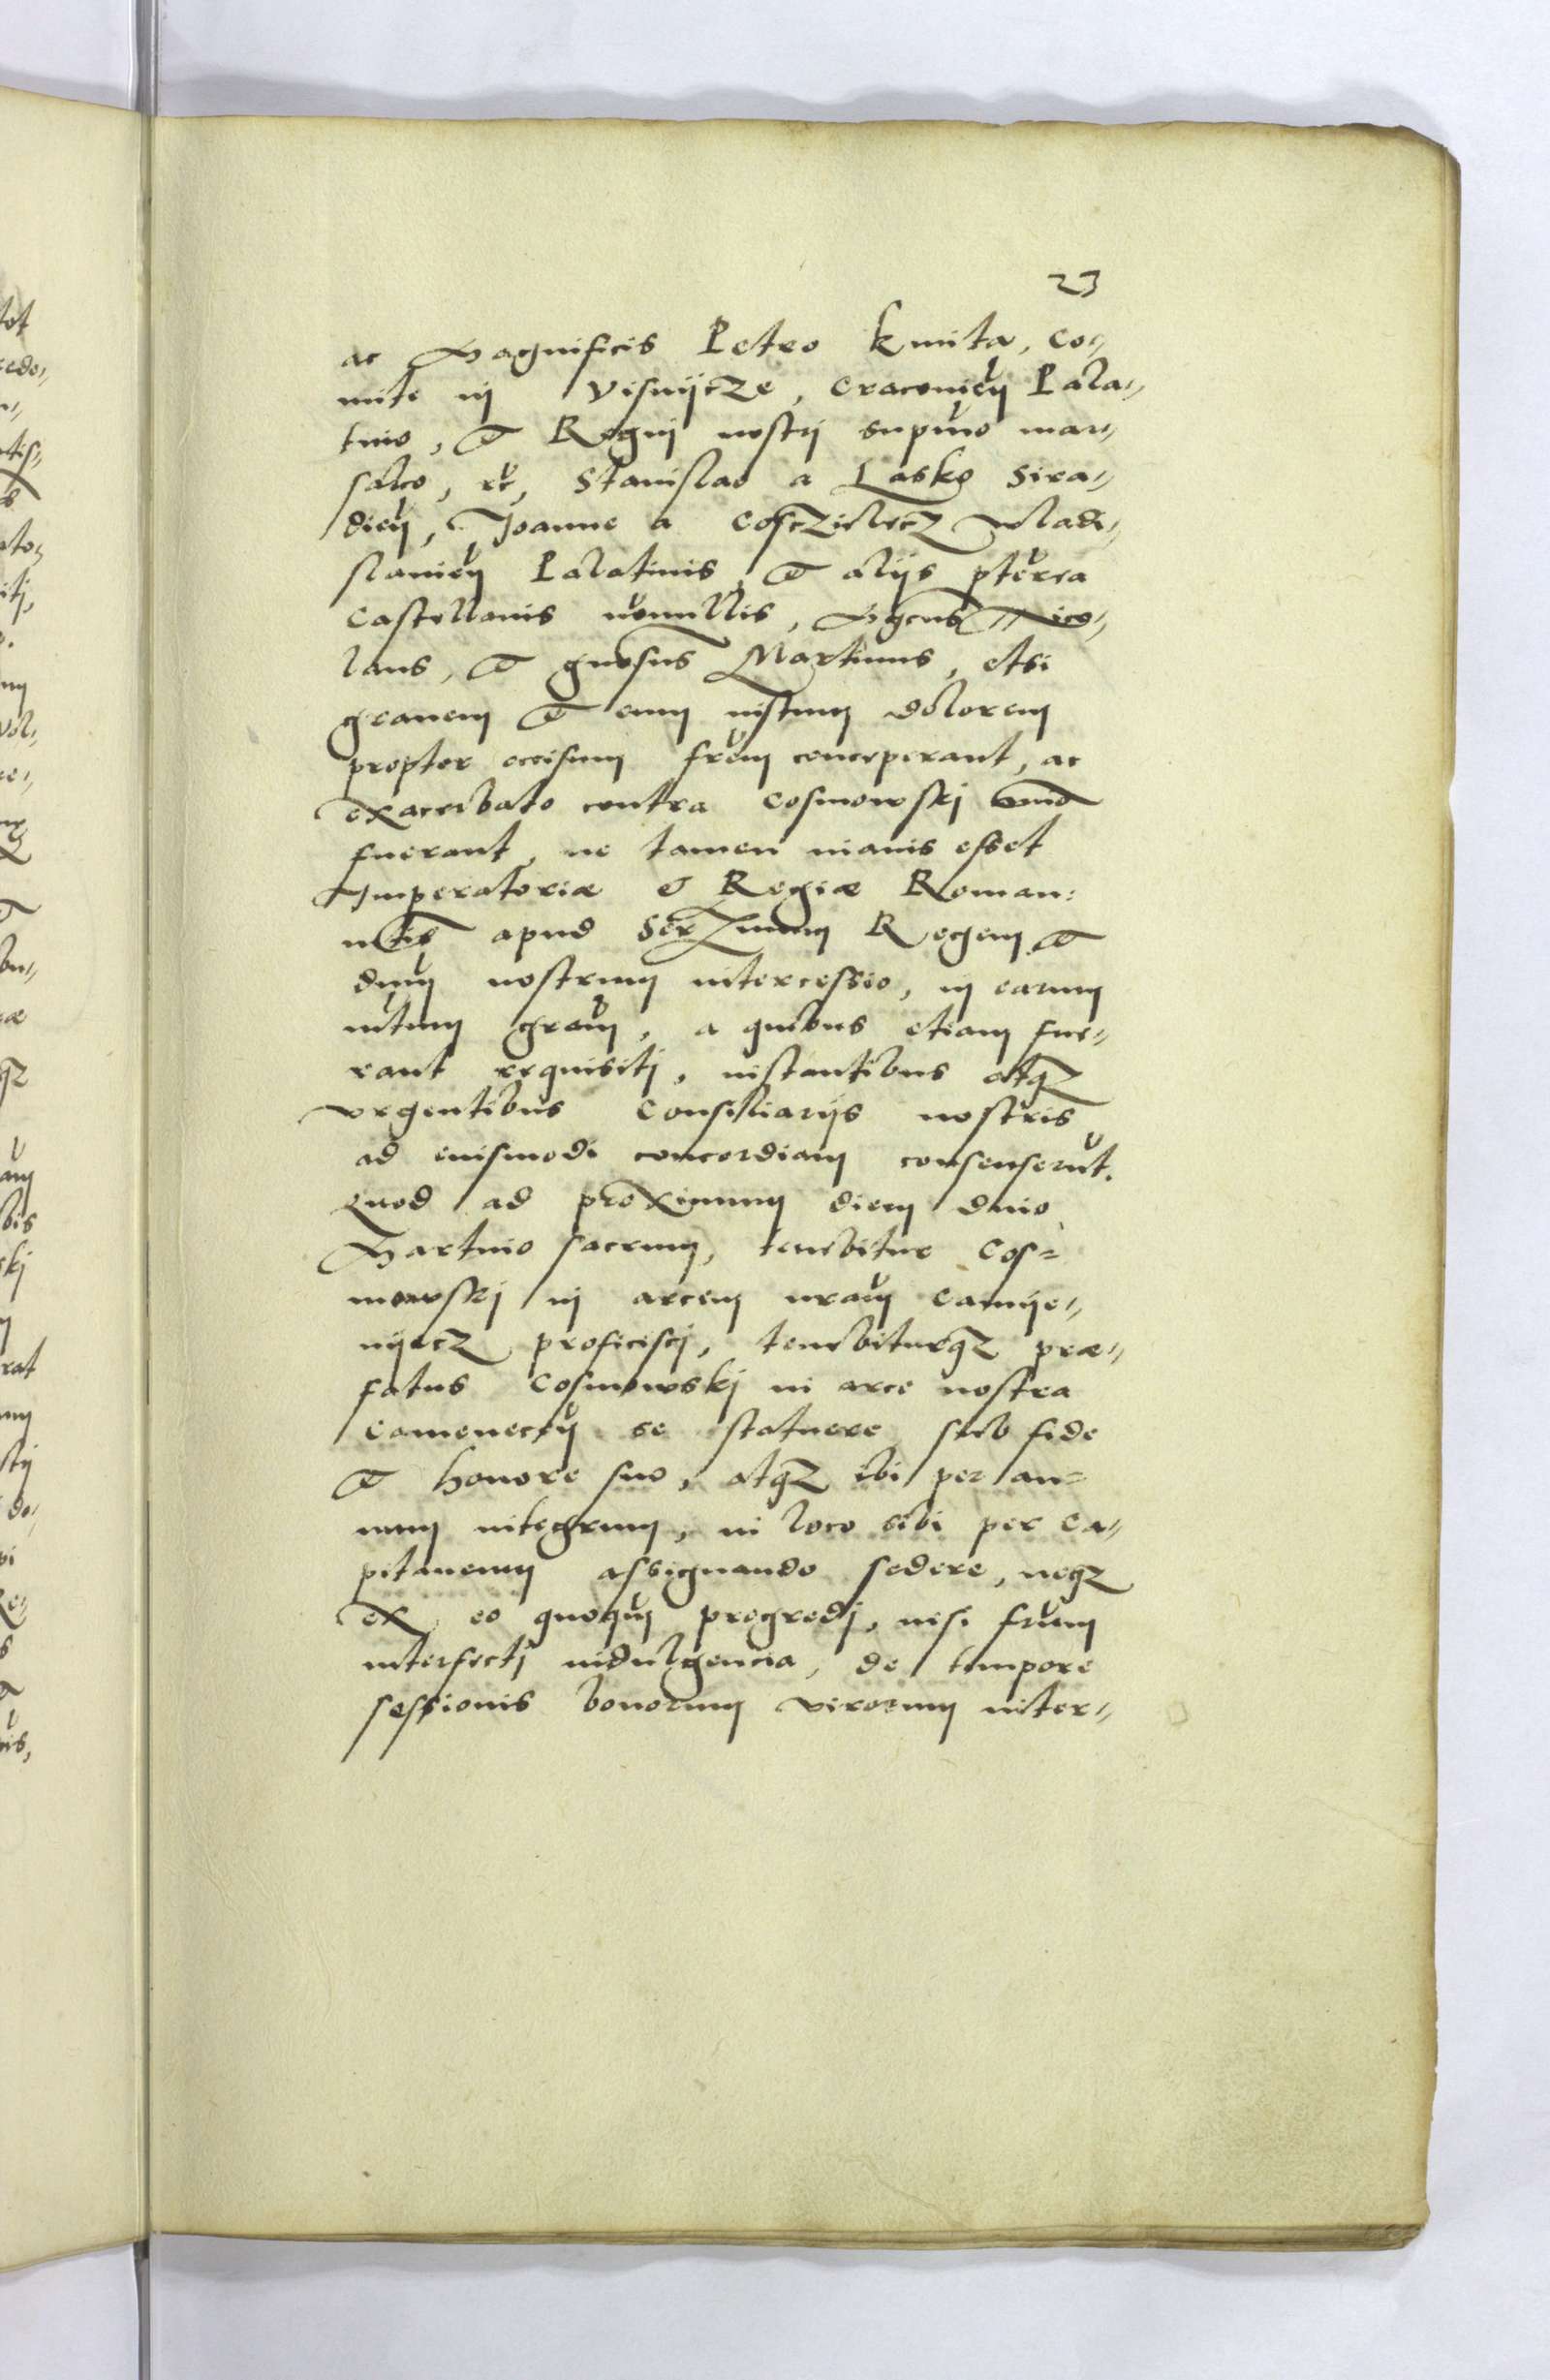 23
ac Magnificis Petro Kmita, Co„
mite in Visnijcze, Cracovień Pala„
tino, et Regni nostri supmo mar„
salco, etc, Stanislao a Lasko Sira„
dień, Joanne a Cosczieliecz Wladi„
slavień Palatinis, et alijs pterea
Castellanis nonnullis, Mgcus Nico„
laus, et gnosus Martinus, etsi
gravem et eum iustum dolorem
propter occisum frem conceperant, ac
exacerbato contra Cosmowskj animo
fuerant, ne tamen inanis esset
Imperatoriæ & Regiæ Roman:
mtis apud Serlmum Regem et
dnum nostrum intercessio, in earum
mtum gram, a quibus etiam fue„
rant requisitj, instantibus atqz
vrgentibus Consiliarijs nostris
ad euismodi concordiam consenserut.
Quod ad proximum diem diuo
Martino sacrum, tenebitur Cos=
mowskj in arcem nram Camije„
nijecz proficiscj, tenebiturqz præ„
fatus Cosmowskj in arce nostra
Cameneceń se statuere sub fide
et honore suo, atqz ibi per an=
num integrum, in loco sibi per Ca„
pitaneum assignando sedere, neqz
ex eo quoquam progredj, nisi frum
interfectj indulgencia, de tempore
sessionis bonorum virorum inter„